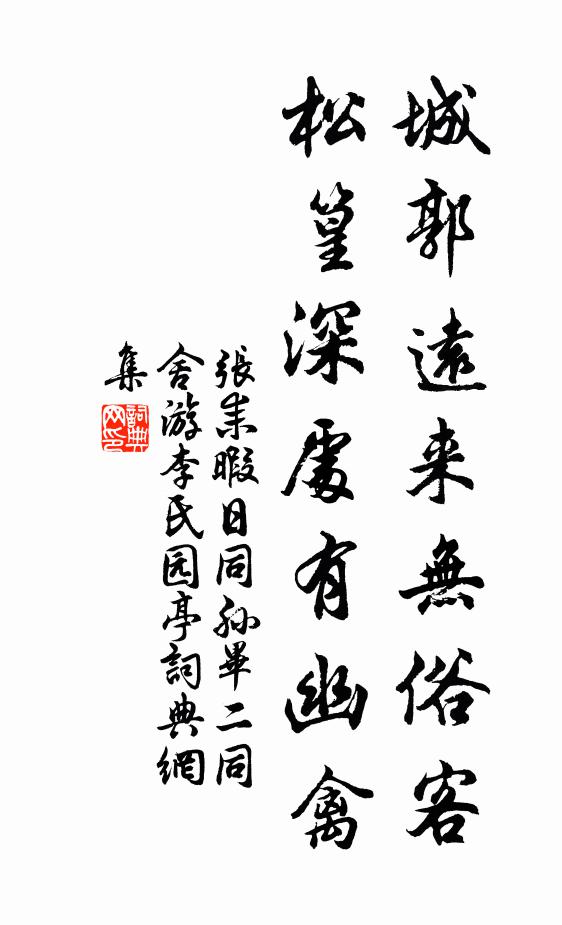 城郭遠来無俗客
松篁深處有幽禽
張耒暇日同孫畢二同
舍游李氏园亭詞典網
集
詞典网印